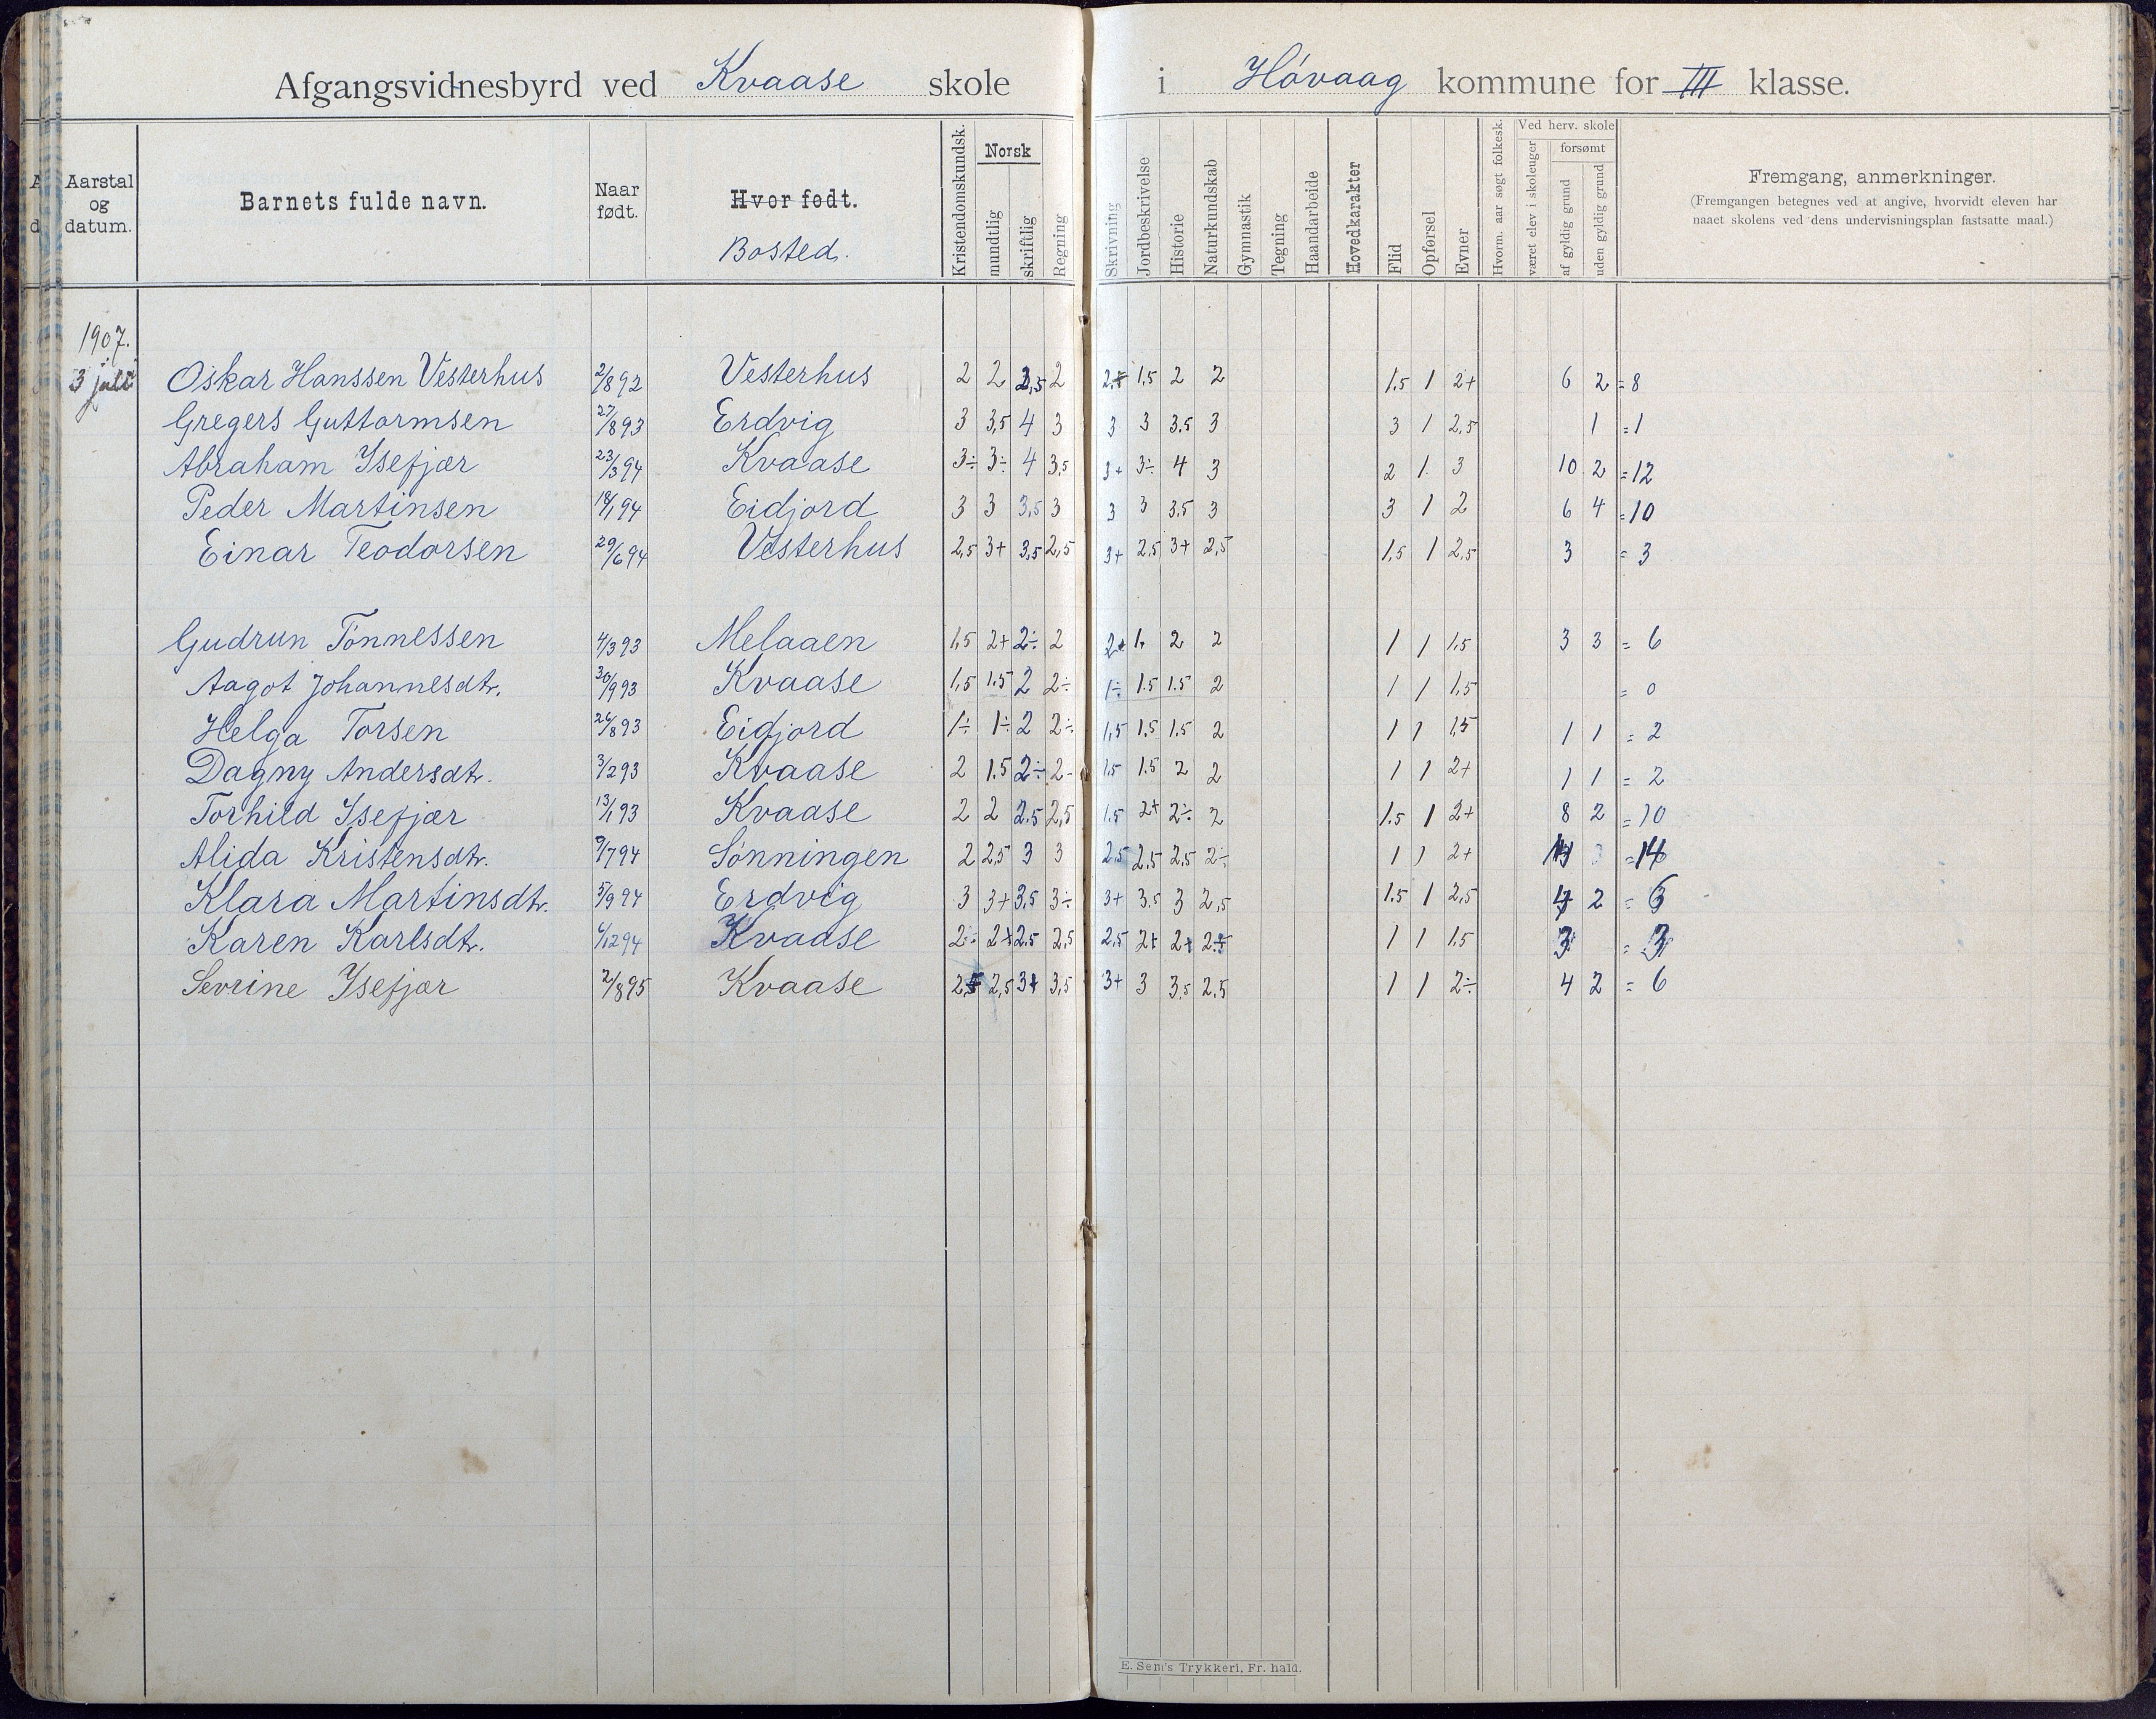 Afgangsvidnesbyrd ved Kvaase skole i Høvaag kommune for III klasse.
Aarstal og datum.
Barnets fulde navn.
Naar født.
Hvor født.
Bosted.
Kristendomskundsk.
Norsk
mundtlig
skriftlig
Regning
Skrivning
Jordbeskrivelse
Historie
Naturkundskab
Gymnastik
Tegning
Haandarbeide
Hovedkarakter
Flid
Opførsel
Evner
Hvorm. aar søgt folkesk.
Ved herv. skole
været elev i skoleuger
forsømt
af gyldig grund
uden gyldig grund
Fremgang, anmerkninger.
(Fremgangen betegnes ved at angive, hvorvidt eleven har
naaet skolens ved dens undervisningsplan fastsatte maal.)
1907.
3 juli Oskar Hanssen Vesterhus 2/8 92 Vesterhus 2 2 2,5 2 1.5 2 2 1.5 1 2+ 6 2 = 8
Gregers Guttormsen 27/8 93 Erdvig 3 3,5 4 3 3 3 3.5 3 3 1 2,5 1 = 1
Abraham Isefjær 23/3 94 Kvaase 3÷ 3÷ 4 3,5 3+ 3÷ 4 3 2 1 3 10 2 = 12
Peder Martinsen 18/1 94 Eidjord 3 3 3,5 3 3 3 3.5 3 3 1 2 6 4 = 10
Einar Teodorsen 29/6 94 Vesterhus 2,5 3+ 3,5 2,5 3+ 2,5 3+ 2,5 1,5 1 2,5 3 = 3
Gudrun Tønnessen 4/3 93 Melaaen 1,5 2+ 2÷ 2 2+ 1, 2 2 1 1 1.5 3 3 = 6
Aagot Johannesdtr. 30/9 93 Kvaase 1,5 1.5 2 2÷ 1÷ 1.5 1.5 2 1 1 1,5 = 0
Helga Torsen 26/8 93 Eidjord 1÷ 1÷ 2 2÷ 1,5 1,5 1.5 2 1 1 1,5 1 1 = 2
Dagny Andersdtr. 3/2 93 Kvaase 2 1.5 2÷ 2- 1.5 1.5 2 2 1 1 2+ 1 1 = 2
Torhild Isefjær 13/1 93 Kvaase 2 2 2.5 2,5 1.5 2+ 2÷ 2 1.5 1 2+ 8 2 = 10
Alida Kristensdtr. 9/7 94 Sønningen 2 2,5 3 3 2.5 2,5 2,5 2÷ 1 1 2+ 3 = 14
Klara Martinsdtr. 5/9 94 Erdvig 3 3+ 3,5 3÷ 3+ 3.5 3 2,5 1.5 1 2,5 4 2 = 6
Karen Karlsdtr. 6/12 94 Kvaase 2÷ 2+ 2.5 2,5 2,5 2+ 2+ 1 1 1.5 3 = 3
Sevrine Isefjær 2/8 95 Kvaase 2,5 2,5 3+ 3,5 3+ 3 3,5 2.5 1 1 2÷ 4 2 = 6
E. Sem's Trykkeri, Fr. hald.